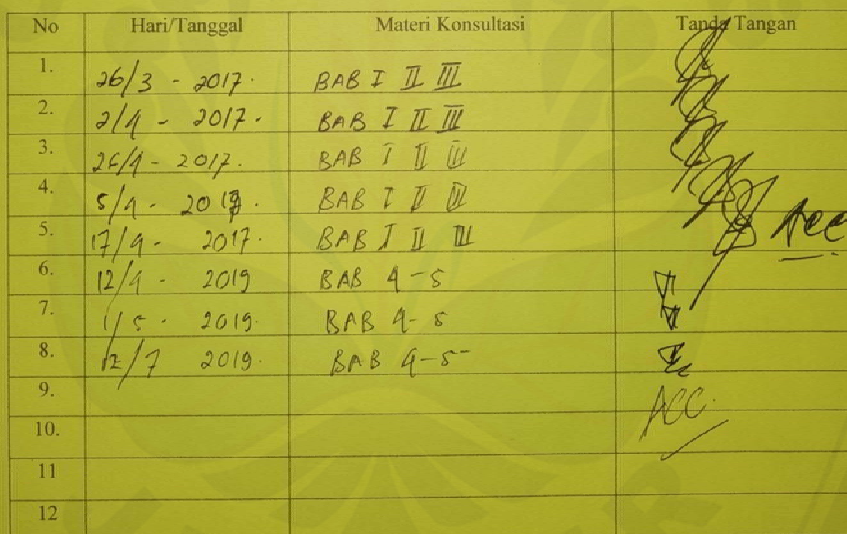 No Hari/Tanggal Materi Konsultasi Tanda Tangan
1. 26/3 - 2017. BAB I II III
2. 2/4 - 2017. BAB I II III
3. 26/4 - 2017. BAB I II III
4. 5/4 - 2017. BAB I II III
5. 17/4 - 2017. BAB I II III Acc
6. 12/4 - 2019 BAB 4-5
7. 1/5 - 2019. BAB 4-5
8. 12/7 2019. BAB 4-5-
9. ACC.
10.
11
12